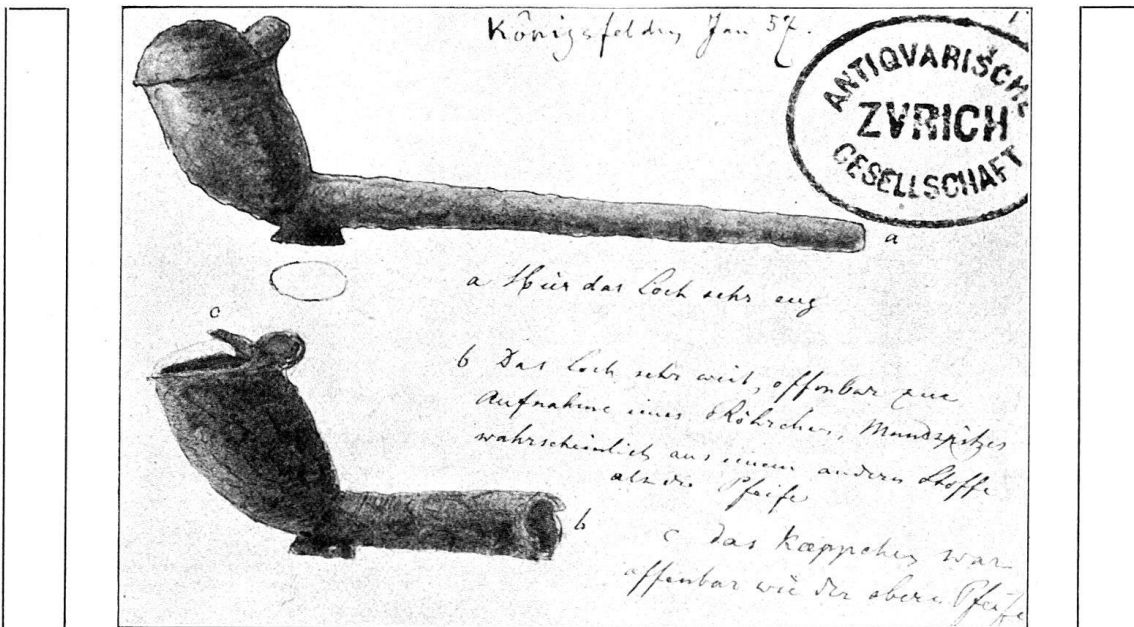 Königsfelden Jan 57.
1.
ANTIQVARISCHE
ZVRICH
GESELLSCHAFT
a
a Hier das Loch sehr eng
c
b Das Loch sehr weit, offenbar zur
Aufnahme eines Röhrchens, Mundspitzes
wahrscheinlich aus einem andern Stoffe
als die Pfeife
b
c das Kæppchen war
offenbar wie der obern Pfeife